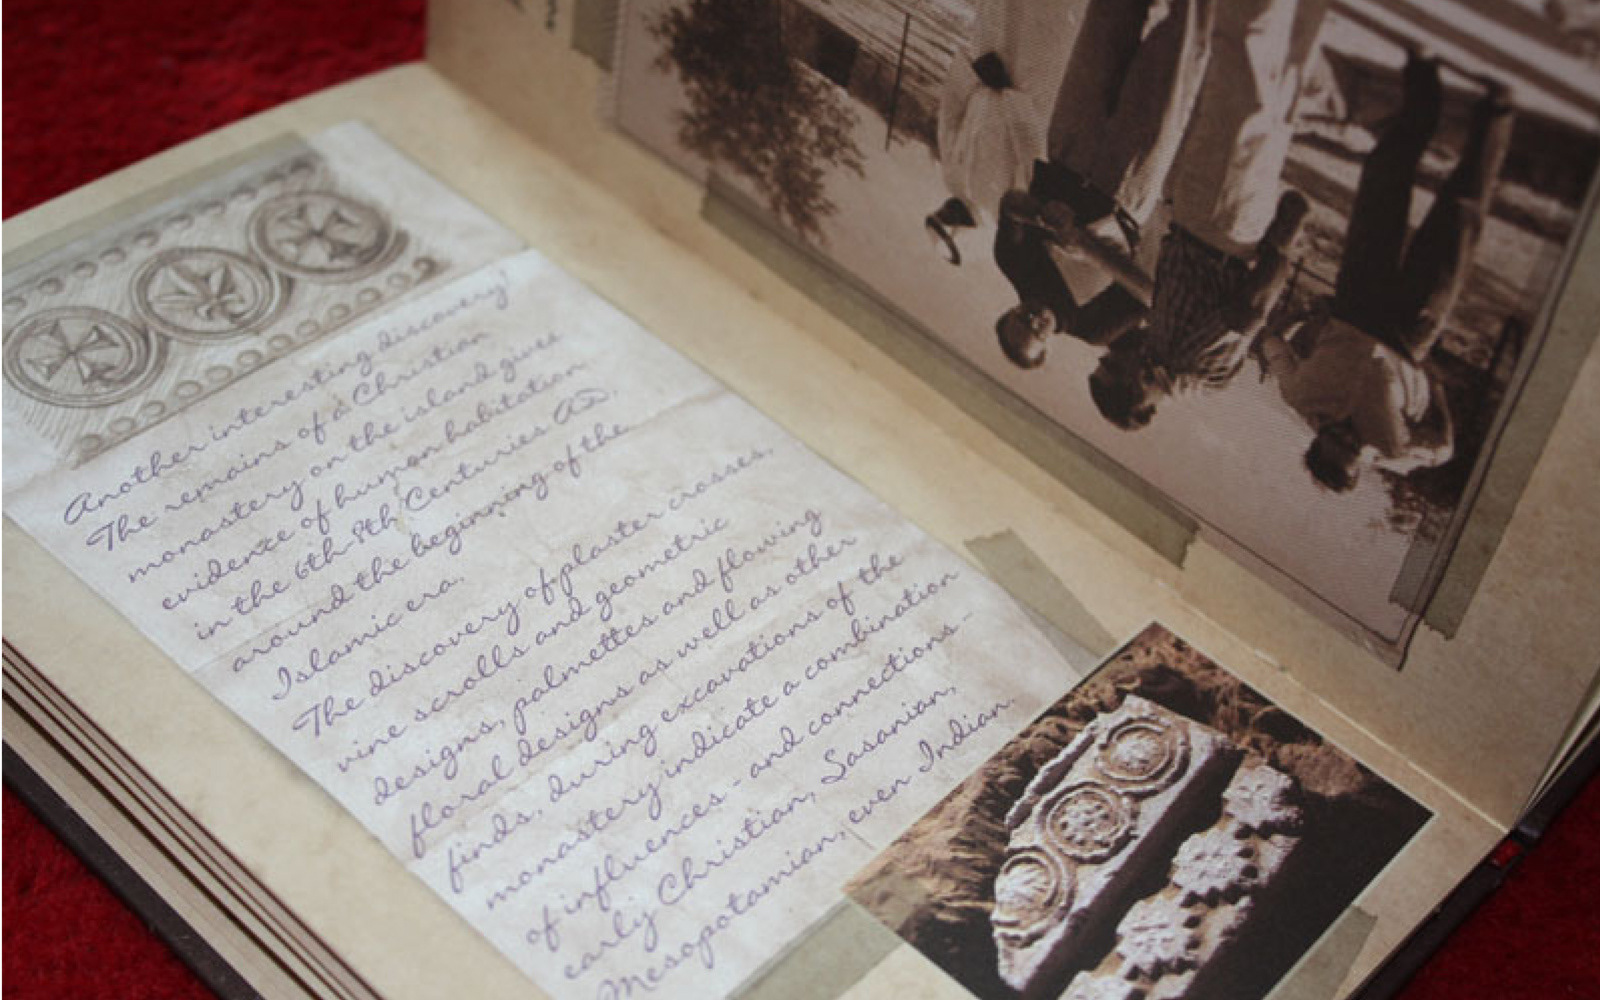 Another interesting discovery!
The remains of a Christian
monastery on the island gives
evidence of human habitation
in the 6th-8th Centuries AD,
around the beginning of the
Islamic era.
The discovery of plaster crosses,
vine scrolls and geometric
designs, palmettes and flowing
floral designs as well as other
finds, during excavations of the
monastery indicate a combination
of influences - and connections -
early Christian, Sasanian,
Mesopotamian, even Indian.